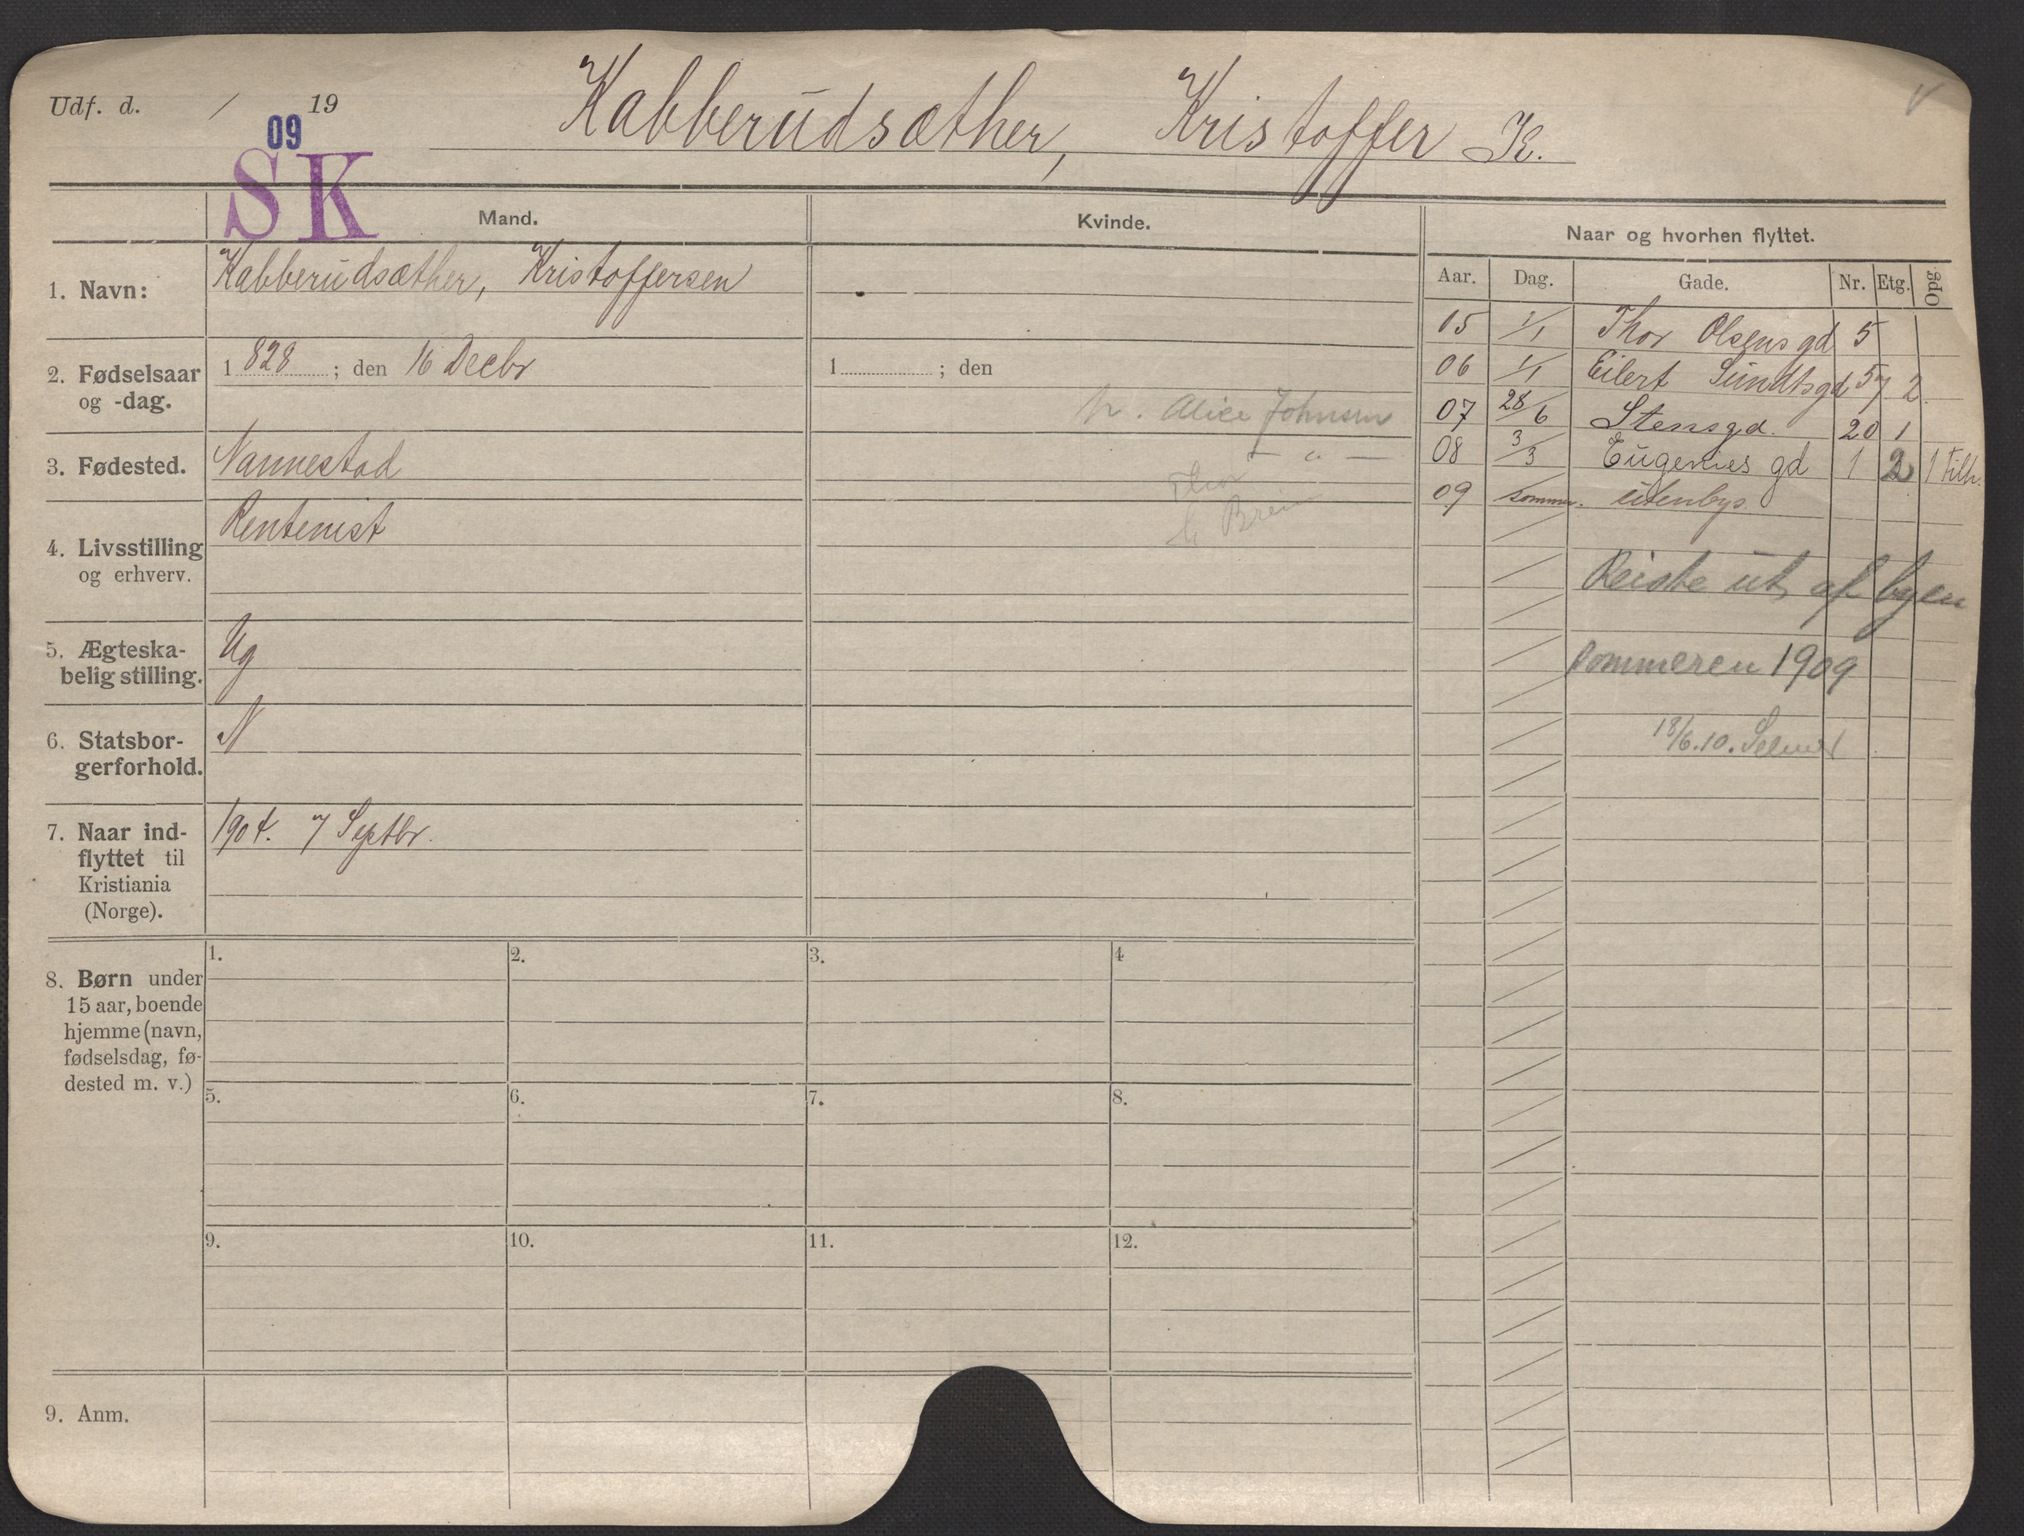 Udf. d. / 19
09
SK
Kabberudsæther, Kristoffer K.
Mand.
Kvinde.
Naar og hvorhen flyttet.
1. Navn:
Kabberudsæther, Kristoffersen
2. Fødselsaar
og -dag.
1 828 ; den 16 Decbr
1 ; den
Alice Johnsen
3. Fødested.
Nannestad
4. Livsstilling
og erhverv.
Rentenist
5. Ægteska-
belig stilling.
Ug
6. Statsbor-
gerforhold.
N
7. Naar ind-
flyttet til
Kristiania
(Norge).
1904. 7 Septbr.
8. Børn under
15 aar, boende
hjemme (navn,
fødselsdag, fø-
dested m. v.)
1. 2. 3. 4
5. 6. 7. 8.
9. 10. 11. 12.
9. Anm.
Aar. Dag. Gade. Nr. Etg. Opg
05 1/1 Thor Olsens gd 5
06 1/1 Eilert Sundtsgd 57 2
07 28/6 Stensgd. 20 1
08 3/3 Eugenies gd 1 2 1 tilh.
09 sommer. utenbys.
Reiste ut af byen
sommeren 1909
18/6.10. Selmer